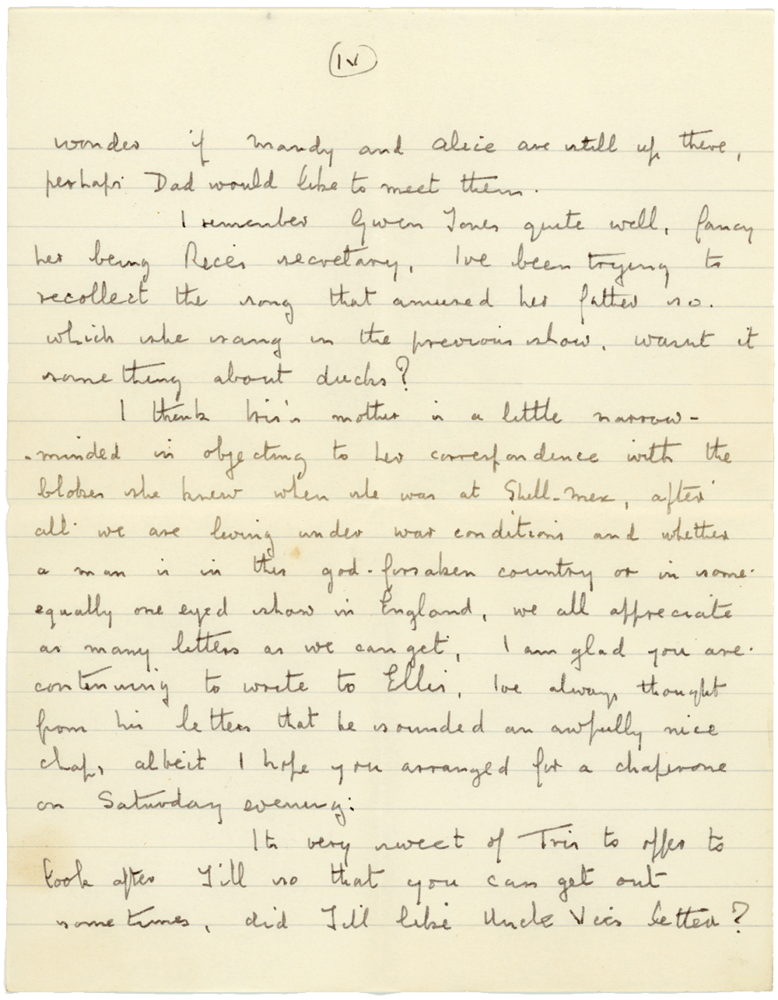 IV
wonder if Mandy and Alice are still up there,
perhaps Dad would like to meet them.
I remember Gwen Jones quite well, fancy
her being Rece's secretary, Ive been trying to
recollect the song that amused her father so.
which she sang in the previous show. wasnt it
something about ducks?
I think Iris's mother is a little narrow-
-minded in objecting to her correspondence with the
blokes she knew when she was at Shell-Mex, after
all we are living under war conditions and whether
a man is in this god-forsaken country or in some
equally one eyed show in England, we all appreciate
as many letters as we can get, I am glad you are
continuing to write to Ellis, Ive always thought
from his letters that he sounded an awfully nice
chap, albeit I hope you arranged for a chaperone
on Saturday evening:
Its very sweet of Iris to offer to
look after Jill so that you can get out
sometimes, did Jill like Uncle Vics letter?